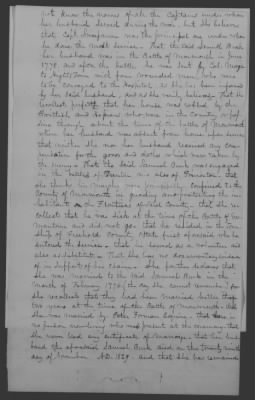 not know the names of all the Captains under whom
her husband served during the war but she believes
that Capt. was the principal one under whom
he done the most service. That the said Samuel Buck
her husband was in the Battle of Monmouth in June
1778. and after the battle, he was sent by Col.
to with four wounded men, who were
to be conveyed to the Hospital, as she has been informed
by her said husband, and as she verily believes, that he
that her house was robbed by the
and who were in the County,
about the time of the battle of Monmouth
when her husband was absent from home upon service,
that neither she nor her husband received any com-
pensation for the goods and which were taken by
the enemy. That the said Samuel Buck was engaged
in the battle of and also of Princeton. that
she thinks his service was principally confined to the
County of Monmouth in guarding and protecting the in-
habitants on the Frontiers of said County. that she re-
collects that he was sick at the time of the Battle of Ger-
mantown and did not go. that he resided in the Town-
ship of Freehold County & State first aforesaid when he
entered the service. that he served as a volunteer and
also as substitute. That she has no documentary evidence
of in support of her claim. She further declares that
she was married to the said Samuel Buck in the
month of February 1776, the day she cannot remember, for
she recollects that they had been married better than
two years at the time of the Battle of Monmouth. that
she was married by Peter Forman Esquire. that there is
no person now living who was present at the ceremony. that
she never had any certificate of marriage. that her hus-
band the aforesaid Samuel Buck died on the twenty
day of November A.D. 1829. and that she has remained